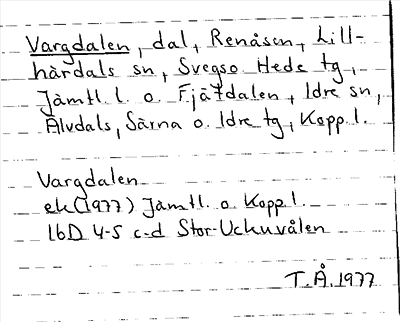 Vargdalen, dal, Renåsen, Lill-
härdals sn, Svegso Hede tg,
Jämtl. l. o. Fjätdalen, Idre sn,
Älvdals, Särna o. Idre tg, Kopp.l.
Vargdalen
ek(1977) Jämtl. o. Kopp l.
16D 4-5 c-d Stor-Uckuvålen
T.Å.1977